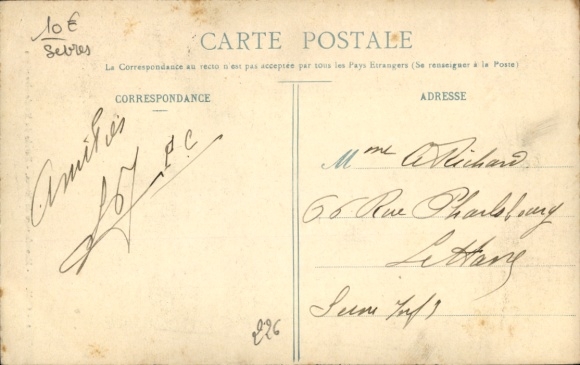 10€
Sèvres
CARTE POSTALE
La Correspondance au recto n'est pas acceptée par tous les Pays Etrangers (Se renseigner à la Poste)
CORRESPONDANCE
Amitiés
P.C
226
ADRESSE
Mme A Richard
66 Rue Phalsbourg
Le Havre
Seine Infre